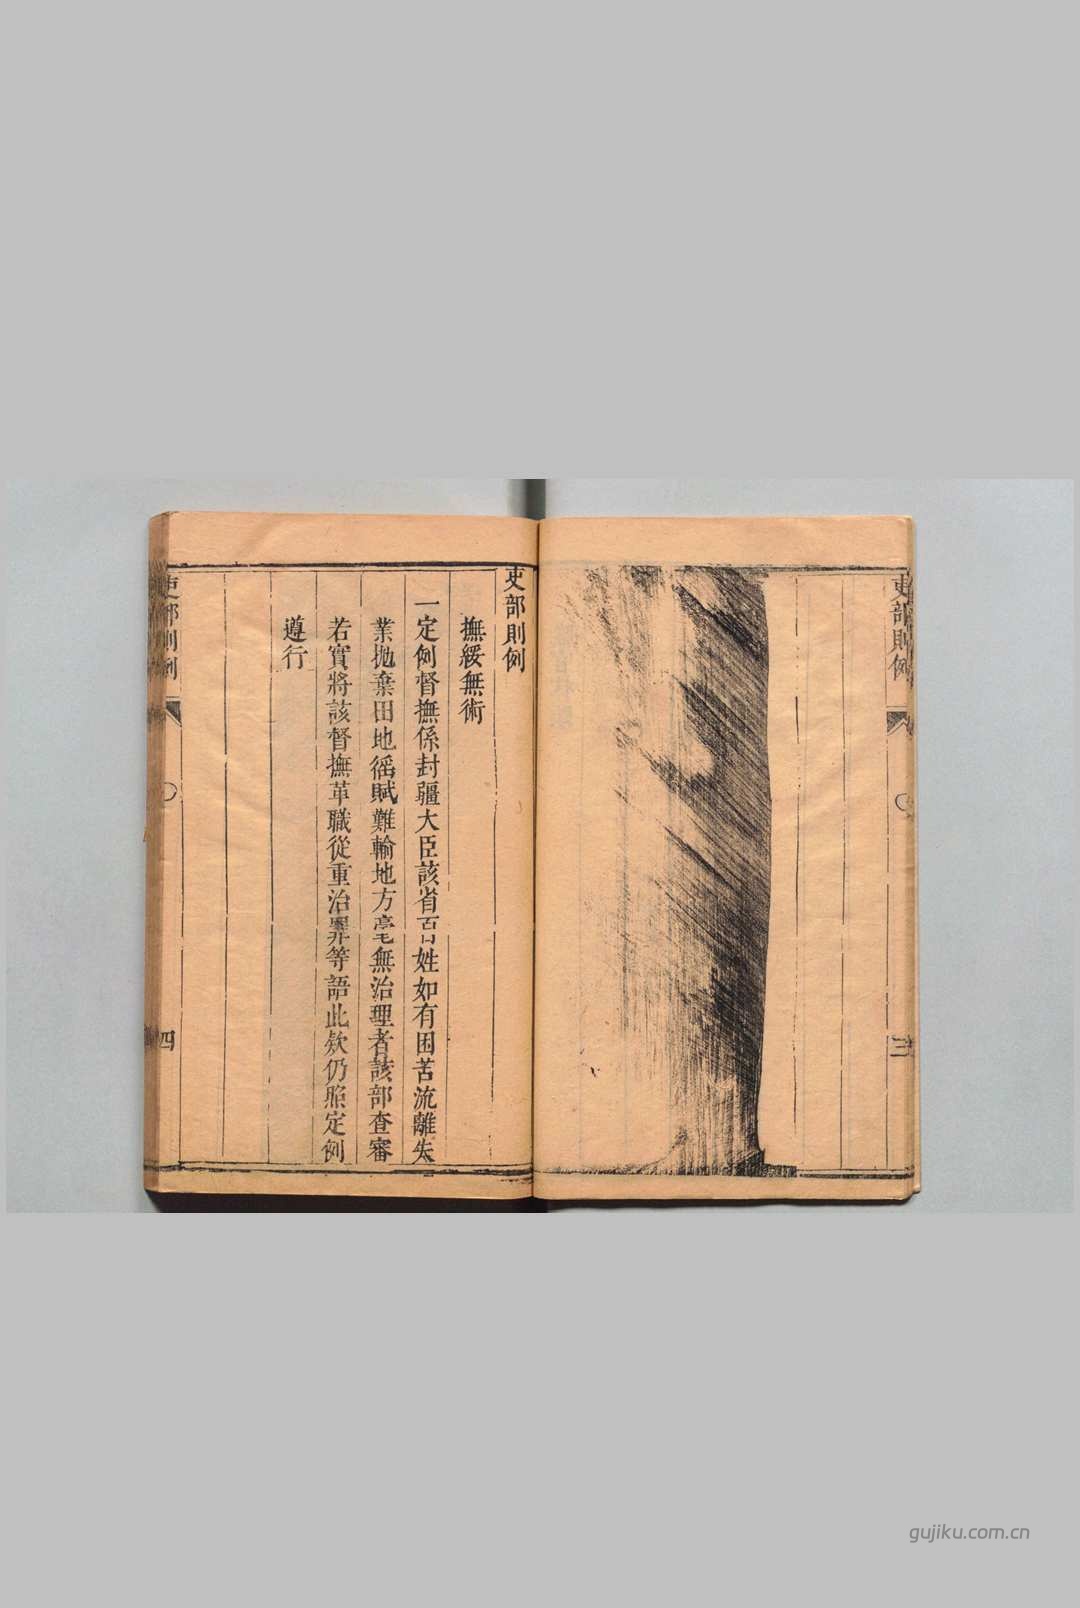 吏部則例
三
吏部則例
撫綏無術
一定例督撫係封疆大臣該省百姓如有困苦流離失
業抛棄田地徭賦難輸地方毫無治理者該部查審
若實將該督撫革職從重治罪等語此欵仍照定例
遵行
吏部則例
四
gujiku.com.cn